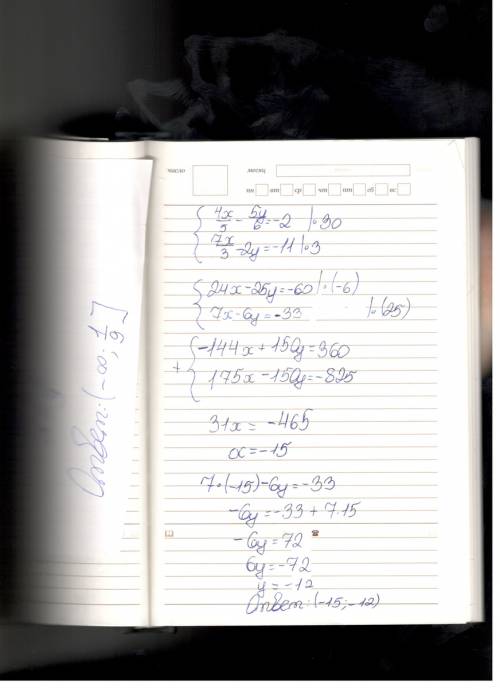 число месяц
пн вт ср чт пт сб вс
4x/5 - 5y/6 = -2 |·30
7x/3 - 2y = -11 |·3
24x - 25y = -60 |·(-6)
7x - 6y = -33 |·(25)
+ -144x + 150y = 360
175x - 150y = -825
31x = -465
x = -15
7·(-15) - 6y = -33
-6y = -33 + 7·15
-6y = 72
6y = -72
y = -12
Ответ: (-15; -12)
Ответ: (-∞; 1/9]